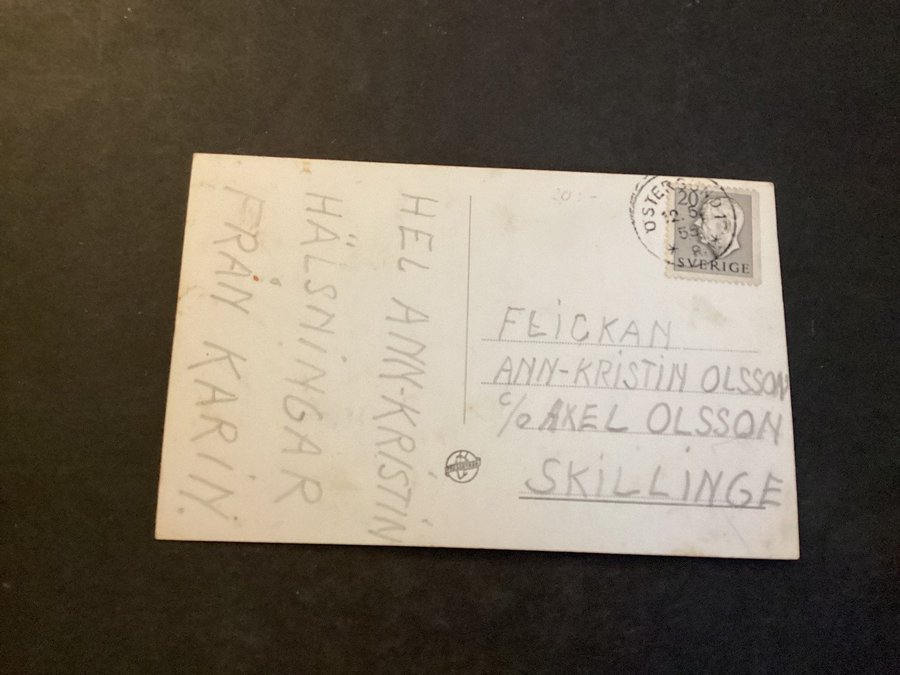 HEL ANN-KRISTIN
HÄLSNINGAR
FRÅN KARIN.
20:-
20
SVERIGE
FLICKAN
ANN-KRISTIN OLSSON
c/o AXEL OLSSON
SKILLINGE